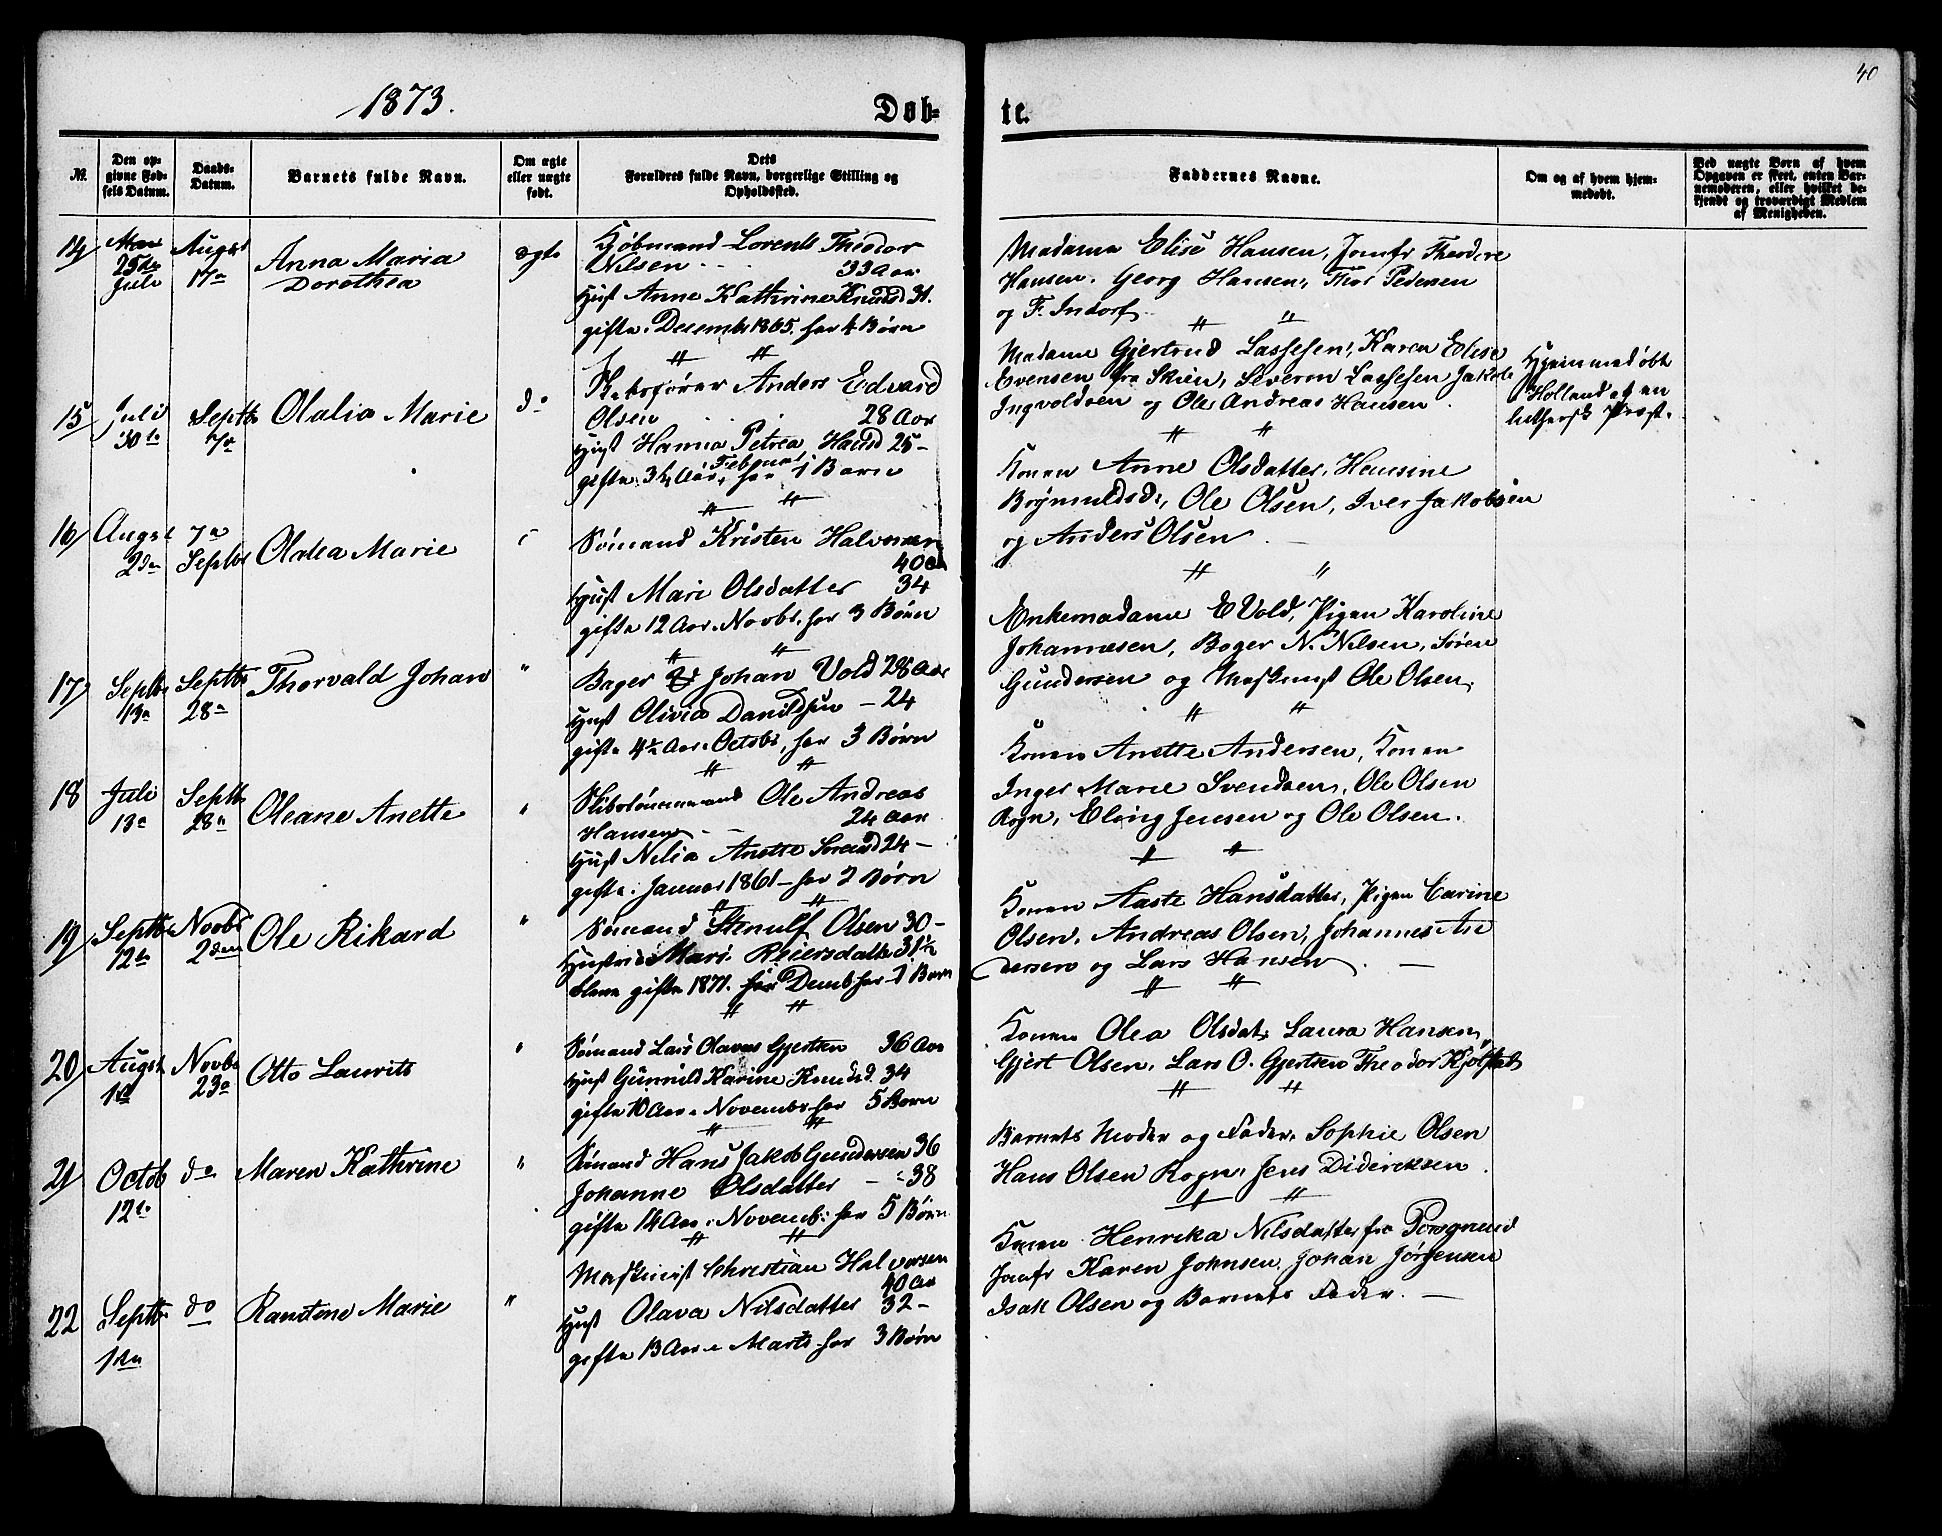 40
1873.
Døb-
te.
№.
Den op-
givne Fød-
sels Datum.
Daabs-
Datum.
Barnets fulde Navn.
Om ægte
eller uægte
født.
Dets
Forældres fulde Navn, borgerlige Stilling og
Opholdssted.
Faddernes Navne.
Om og af hvem hjem-
medøbt.
Ved uægte Børn af hvem
Opgaven er skeet, enten Bar-
nemoderen, eller hvilket be-
kjendt og troværdigt Medlem
af Menigheden.
14
25de
Juli
August
17de
Anna Maria
Dorothea
ægte
Kjøbmand Lorents Theodor
Nilsen 33 Aar
Hust Anne Kathrine Knudsd 31.
gifte i Decembr 1865. har 4 Børn
Madame Elise Hansen, Jomfr Theodore
Hansen. Georg Hansen, Thor Pedersen
og F. Indorf.
15
Juli
30te
Septbr
7de
Olalia Marie
do
Anders Edvard
Olsen 28 Aar
Hust Hanna Petrea Hansd 25-
gifte 3½ Aar, Februar har 1 Barn
Madame Gjertrud Lassesen, Karen Elise
Evensen fra Skien, Severin Lassesen Jakob
Ingvoldsen og Ole Andreas Hansen.
Hjemmedøbt
Holland af en
luthersk Præst.
16
August
2den
7de
Septbr
Olalea Marie
Sømand Kristen Halvorsen
40 Aar
Hust Mari Olsdatter 34
gifte 12 Aar. Novbr. har 3 Børn
Konen Anne Olsdatter, Hansine
Brynuldsd, Ole Olsen, Iver Jakobsen
og Anders Olsen
17
Septbr
13de
Septbr
28de
Thorvald Johan
"
Bager Johan Vold 28 Aar
Hust Olivia Danildsen - 24
gifte 4½ Aar. Octobr, har 3 Børn
Enkemadame E Vold, Pigen Karoline
Johannesen, Bager N. Nilsen, Søren
Gundersen og Maskinist Ole Olsen.
18
Juli
13de
Septbr
28de
Oleane Anette
"
Skibstømmermand Ole Andreas
Hansen 24 Aar
Hust Nilia Anette Sørensd 24-
gifte i Januar 1861 - har 2 Børn
Konen Anette Andersen, Konen
Inger Marie Svendsen, Ole Olsen
Rogn, Eling Jensen og Ole Olsen.
19
Septbr
12te
Novbr
2den
Ole Rikard
"
Sømand Stenulf Olsen 30-
Hustru Mari Reiersdatter 31½
gifte 1871. har 1 Barn
Konen Aaste Hansdatter, Pigen Carine
Olsen, Andreas Olsen, Johannes An
dersen og Lars Hansen.
20
August
1ste
Novbr
23de
Otto Laurits
"
Sømand Lars Olaves Gjertsen 36 Aar
Hust Gunnild Karine Knudsd. 34
gifte 10 Aar i Novembr har 5 Børn
Konen Olea Olsdat, Laura Hansen,
Gjert Olsen, Lars O. Gjertsen Theodor Kjølstad
21
Octob
12te
do
Maren Kathrine
"
Sømand Hans Jakob Gundersen 36
Johanne Olsdatter - 38
gifte 14 Aar i Novemb: har 5 Børn
Barnets Moder og Fader, Sophie Olsen
Hans Olsen Rogn, Jens Didericksen.
22
Septbr
1ste
do
Ranstene Marie
"
Maskinist Christian Halvorsen
40 Aar
Hust Olava Nilsdatter 32-
gifte 13 Aar i Marts har 3 Børn
Konen Henrika Nilsdatter fra Porsgrund
Jomfr Karen Johnsen, Johan Jørgensen
Isak Olsen og Barnets Fader.